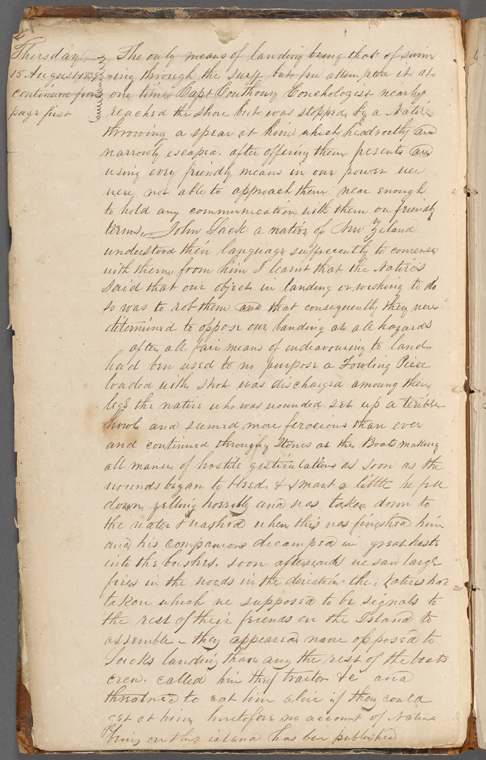 Thursday The only means of landing being that of swim
15 August 1839 ing through the surf but few attempted it at
continued from one time Capt Couthouy Conchologist nearly
page first reached the shore but was stopped by a Native
throwing a spear at him which he adroitly and
narrowly escaped. after offering them presents and
using evry friendly means in our power we
were not able to approach them near enough
to hold any communication with them on friendly
terms. John Sack a native of New Zeland
understood their language sufficiently to converse
with them, from him I learnt that the Natives
said that our object in landing or wishing to do
so was to rob them and that consequently they were
determined to oppose our landing at all hazards
after all fair means of endeavouring to land
had ben used to no purpose a Fowling Piece
loaded with shot was discharged amoung their
legs the native who was wounded set up a terible
howl and seemed more ferocious than ever
and continued throwing Stones at the Boats making
all maner of hostile gesticulations as soon as the
wounds began to bleed & smart a little he fell
down yelling horribly and was taken down to
the water & washed when this was finished him
and his companions decamped in great hast
into the bushes. soon afterwards we saw large
fires in the woods in the direction the Natives had
taken which we supposed to be signals to
the rest of their friends on the Island to
assemble – they appeared more opposed to
Sacks landing than any the rest of the boats
crew. called him thief traitor &c and
threatned to eat him alive if they could
get at him heretofore no account of Natives
being on this island has ben published